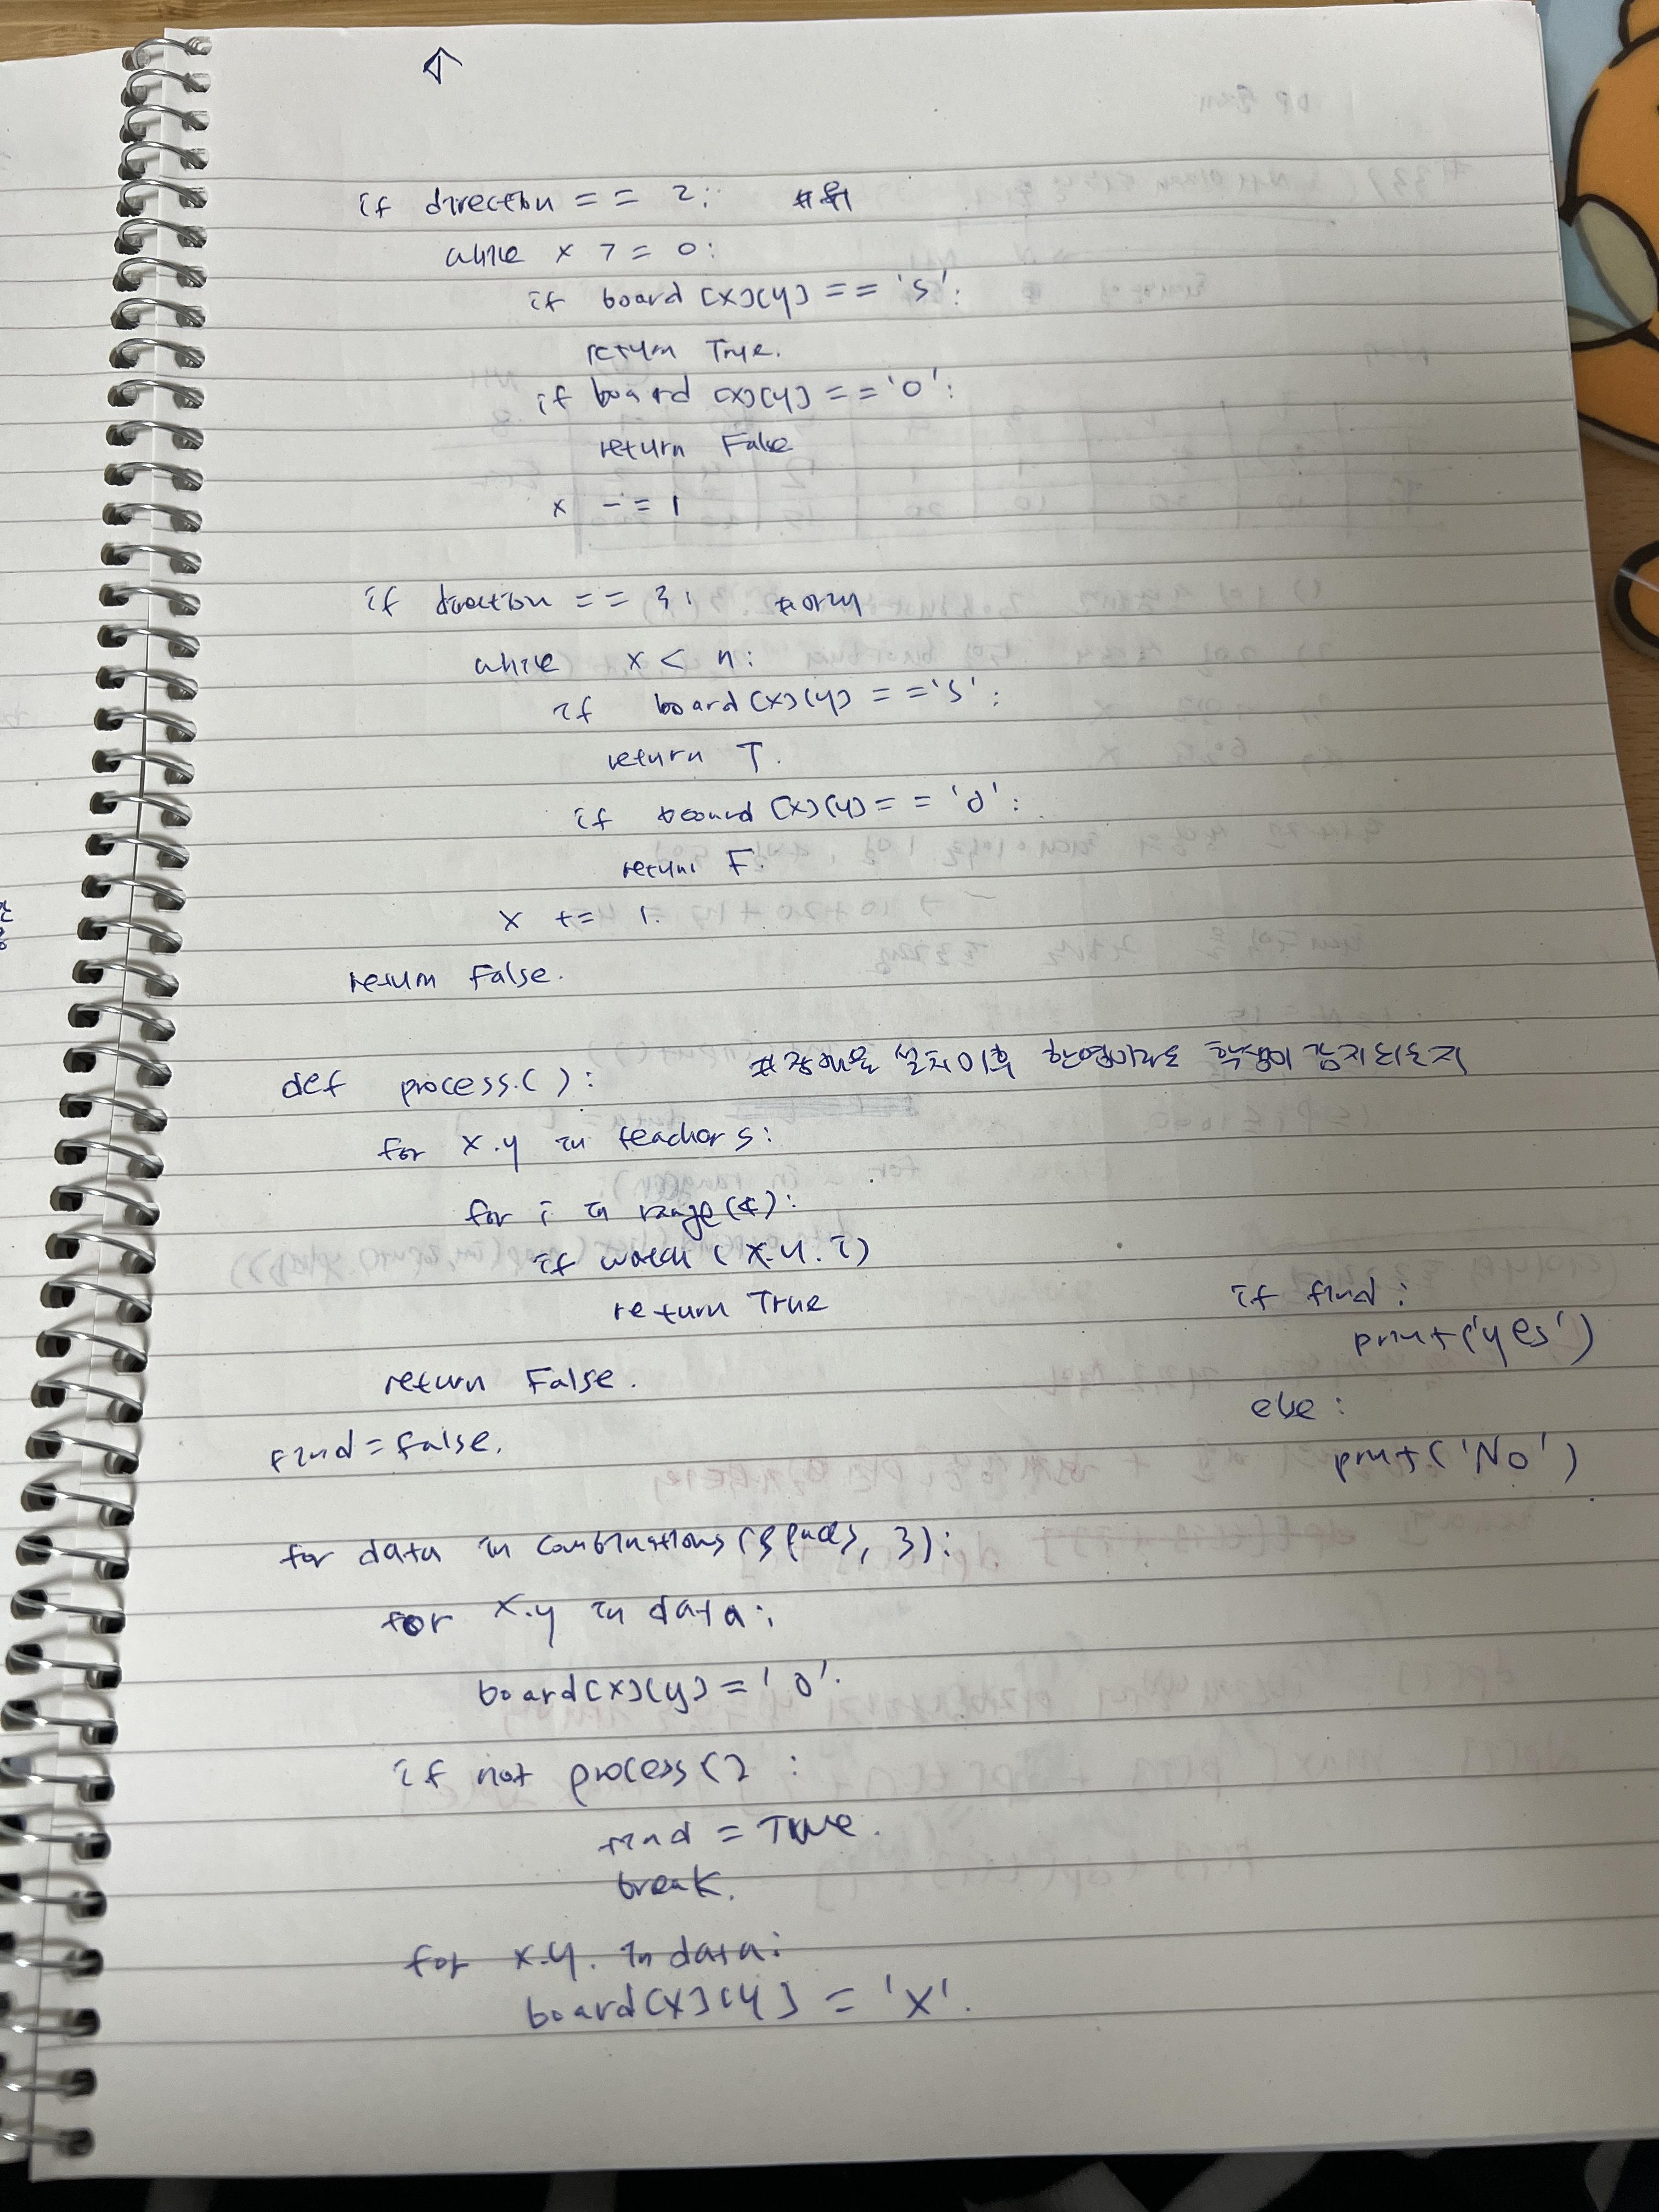 if direction == 2: #위
while x >= 0:
if board[x][y] == 'S':
return True.
if board[x][y] == 'O':
return False
x -= 1
if direction == 3: #아래
while x < n:
if board[x][y] == 'S':
return T.
if board[x][y] == 'O':
return F.
x += 1.
return False.
def process.(): #장애물 설치이후 한명이라도 학생이 감지되는지
for x.y in teachers:
for i in range(4):
if watch (x.y.i)
return True
return False.
find = false.
for data in combinations(spaces, 3):
for x.y in data:
board[x][y] = 'O'.
if not process() :
find = True.
break.
for x.y. in data:
board[x][y] = 'X'.
if find:
print('yes')
else:
print('No')